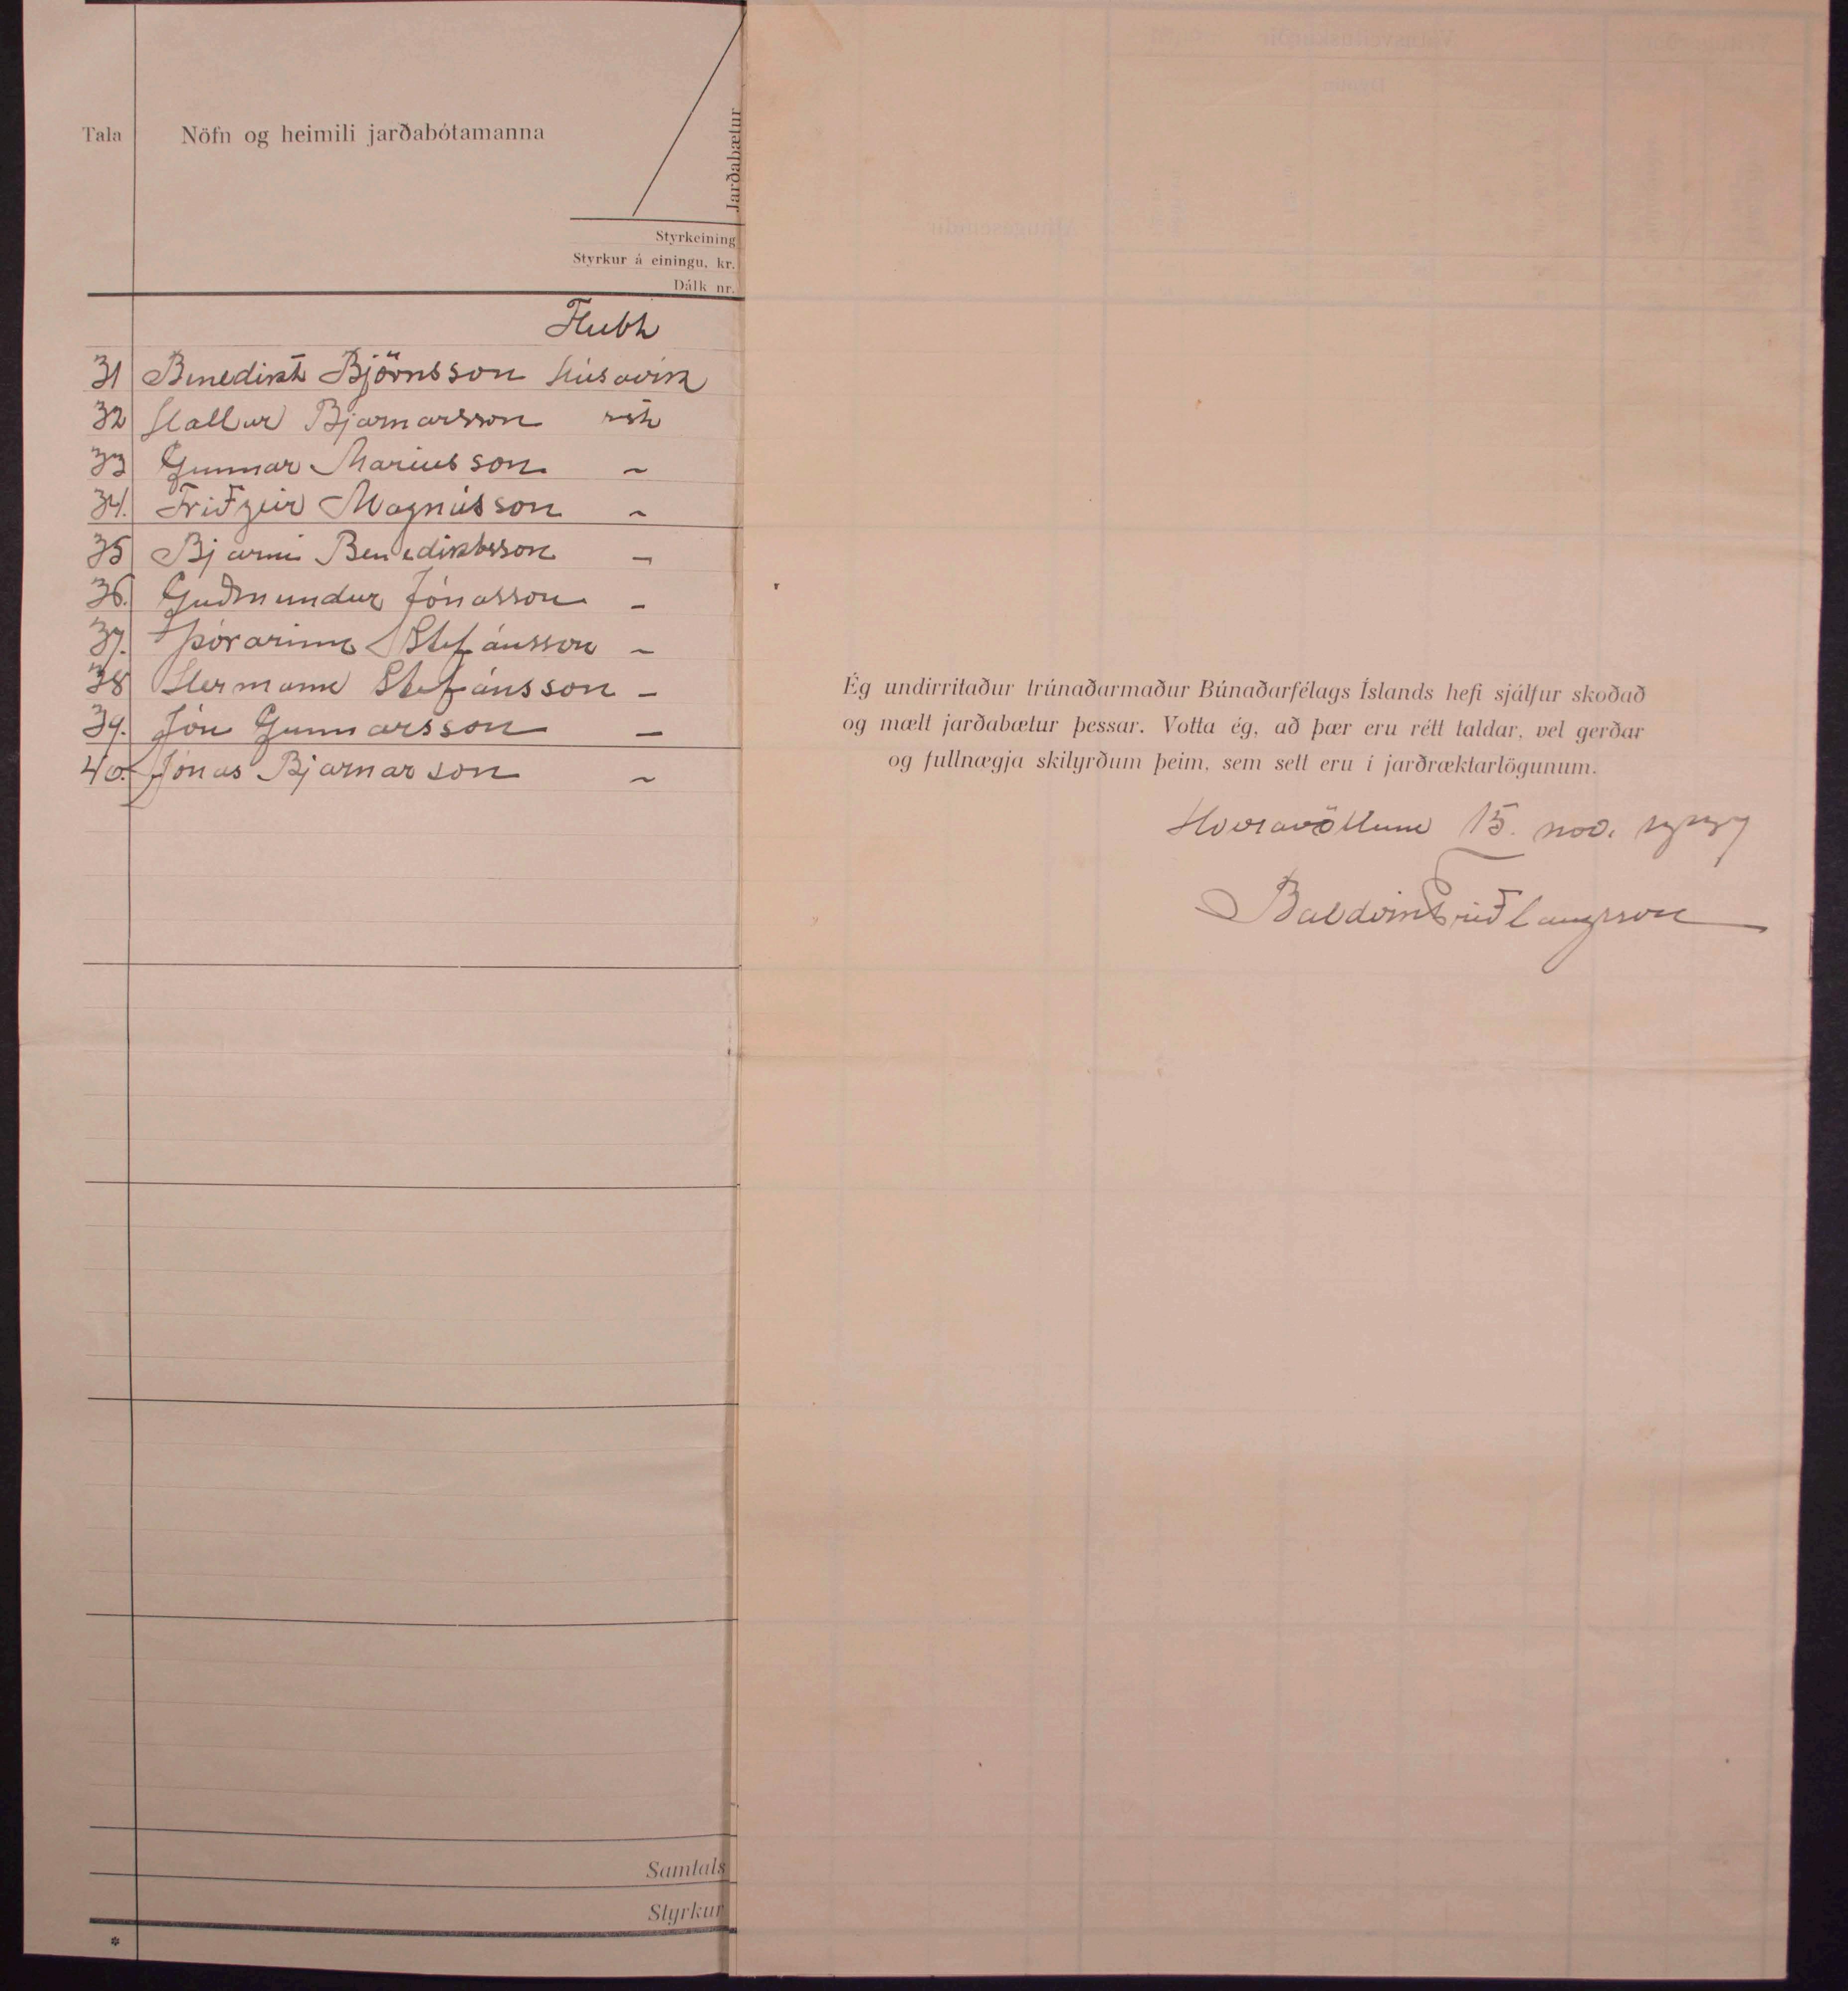 Tala
Nöfn og heimili jarðabótamanna
Jarðabætur
Styrkeining
Styrkur á einingu, kr.
Dálk nr.
Flutt
31 Benedikt Björnsson Húsavík
32 Hallur Bjarnarsson
33 Gunnar Maríusson –
34. Friðgeir Magnússon –
35 Bjarni Benediktsson –
36. Guðmundur Jónasson –
37. Þórarinn Stefánsson –
38 Hermann Stefánsson –
39. Jón Gunnarsson –
40. Jónas Bjarnarson –
Samtals
Styrkur
*
Ég undirritaður trúnaðarmaður Búnaðarfélags Íslands hefi sjálfur skoðað
og mælt jarðabætur þessar. Votta ég, að þær eru rétt taldar, vel gerðar
og fullnægja skilyrðum þeim, sem sett eru í jarðræktarlögunum.
Hveravöllum 15. nov.
Baldvin Friðlaugsson